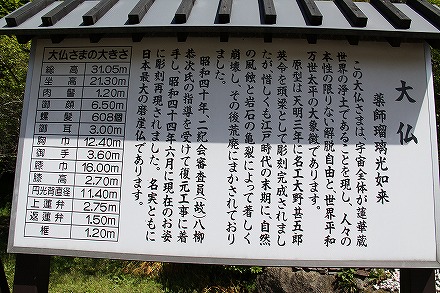 大仏
薬師瑠璃光如来
この大仏さまは、宇宙全体が蓮華蔵
世界の浄土であることを現し、人々の
本性の限りない解脱自由と、世界平和
万世太平の大象徴であります。
原型は天明三年に名工大野甚五郎
英令を頭梁として彫刻完成されまし
たが惜しくも江戸時代の末期に、自然
の風蝕と岩石の亀裂によって著しく
崩壊し、その後荒廃にまかされており
ました。
昭和四十年、二紀会審査員(故)八柳
恭次氏の指導を受けて復元工事に着
手し、昭和四十四年六月に現在のお姿
に彫刻再現されました。名実ともに
日本最大の磨崖仏であります。
大仏さまの大きさ
総高 31.05m
坐高 21.30m
肉髻 1.20m
御顔 6.50m
螺髪 608個
御耳 3.00m
胸巾 12.40m
御手 3.60m
膝巾 16.00m
膝高 2.70m
円光背直径 11.40m
上蓮弁 2.75m
返蓮弁 1.50m
框 1.20m